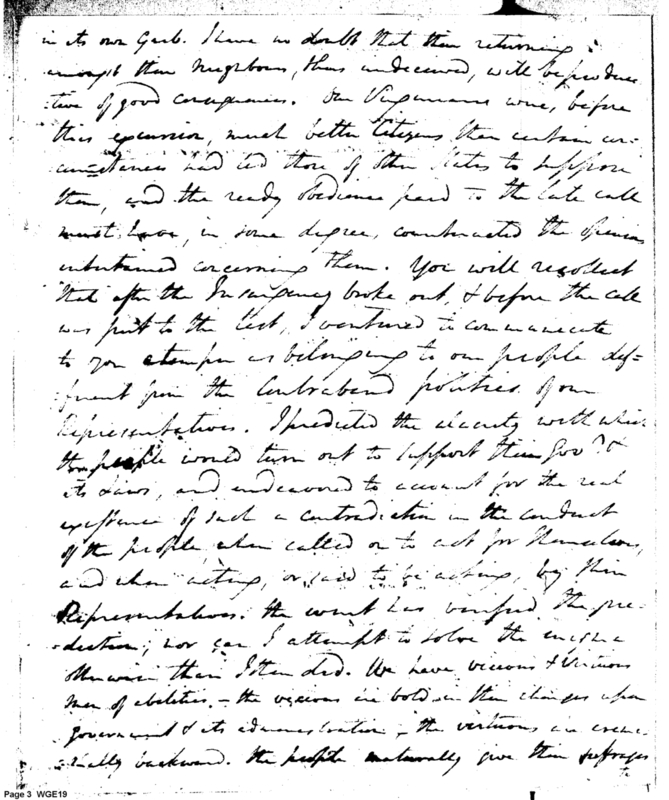 in its own Garb. I have no doubt that their returning
amongst their Neighbours, thus undeceived, will be produc
:tive of good consequences. Our Virginians were, before
this excursion, much better Citizens than certain cir-
cumstances had led those of other States to suppose
them, and the ready obedience paid to the late call
must have, in some degree, counteracted the opinions
entertained concerning them. You will recollect
that after the Insurgency broke out, & before the call
was put to the test, I ventured to communicate
to you a temper as belonging to our people dif-
ferent from the Contraband politics of our
Representatives. I predicted the alacrity with which
the people would turn out to support their Govt. &
its Laws, and endeavored to account for the real
existence of such a contradiction in the conduct
of the people when called on to act for themselves,
and when acting, or said to be acting, by their
Representatives. The event has verified the pre-
:diction; nor can I attempt to solve the enigma
otherwise than I then did. We have vicious & virtuous
men of abilities. – the vicious are bold in their charges upon
government & its administration – the virtuous are
backward. The people naturally give their suffrages
Page 3 WGE19